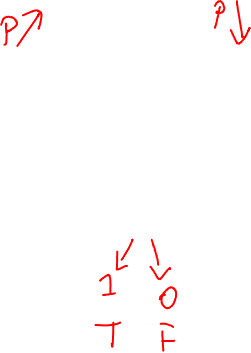 P↗ P↓
↙ ↘
1 0
T F